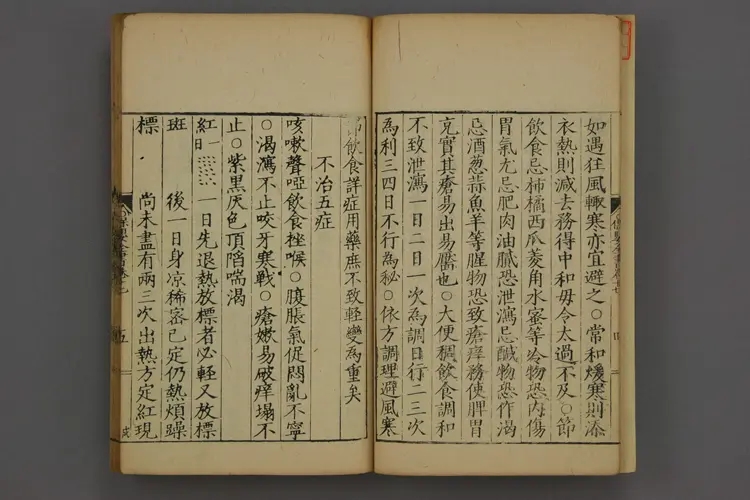 如遇狂風輙寒亦宜避之○常和煖寒則添
衣熱則減去務得中和毋令太過不及○節
飲食忌柿橘西瓜菱角水蜜等冷物恐内傷
胃氣尤忌肥肉油膩恐泄瀉忌醎物恐作渴
忌酒葱蒜魚羊等腥物恐致瘡痒務使脾胃
充實其瘡易出易靨也○大便稠飲食調和
不致泄瀉一日二日一次為調日行二三次
為利三四日不行為秘○依方調理避風寒
四
節飲食詳症用藥庶不致輕變為重矣
不治五症
咳嗽聲啞飲食挫喉○腹脹氣促悶亂不寧
○渴瀉不止咬牙寒戰○瘡嫩易破痒塌不
止○紫黑灰色頂陷喘渴
紅一日 一日先退熱放標者必輕又放標
斑 後一日身凉稀密已定仍熱煩躁
標 尚未盡有兩三次出熱方定紅現
五